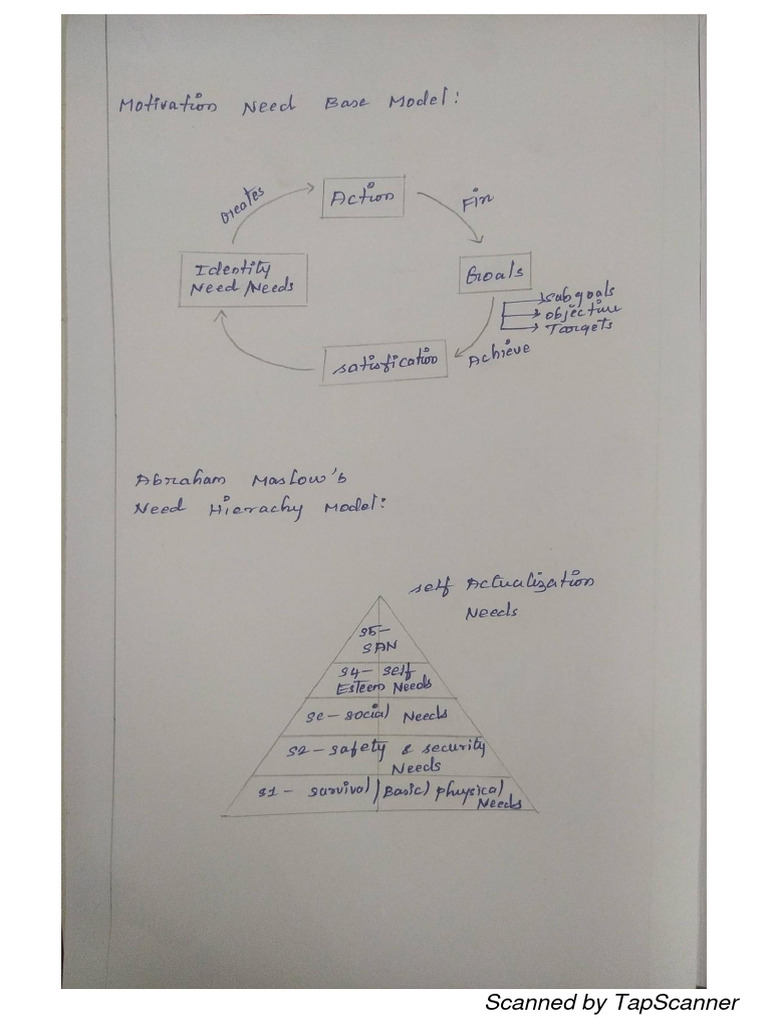 Motivation Need Base Model:
Creates
Action
Fin
Identity
Need/Needs
Goals
subgoals
objective
Targets
Achieve
satisfication
Abraham Maslow's
Need Hierachy Model:
self Actualization
Needs
S5-
SAN
S4- self
Esteem Needs
Se-social Needs
S2-safety & security
Needs
S1- survival/Basic/physical
Needs
Scanned by TapScanner